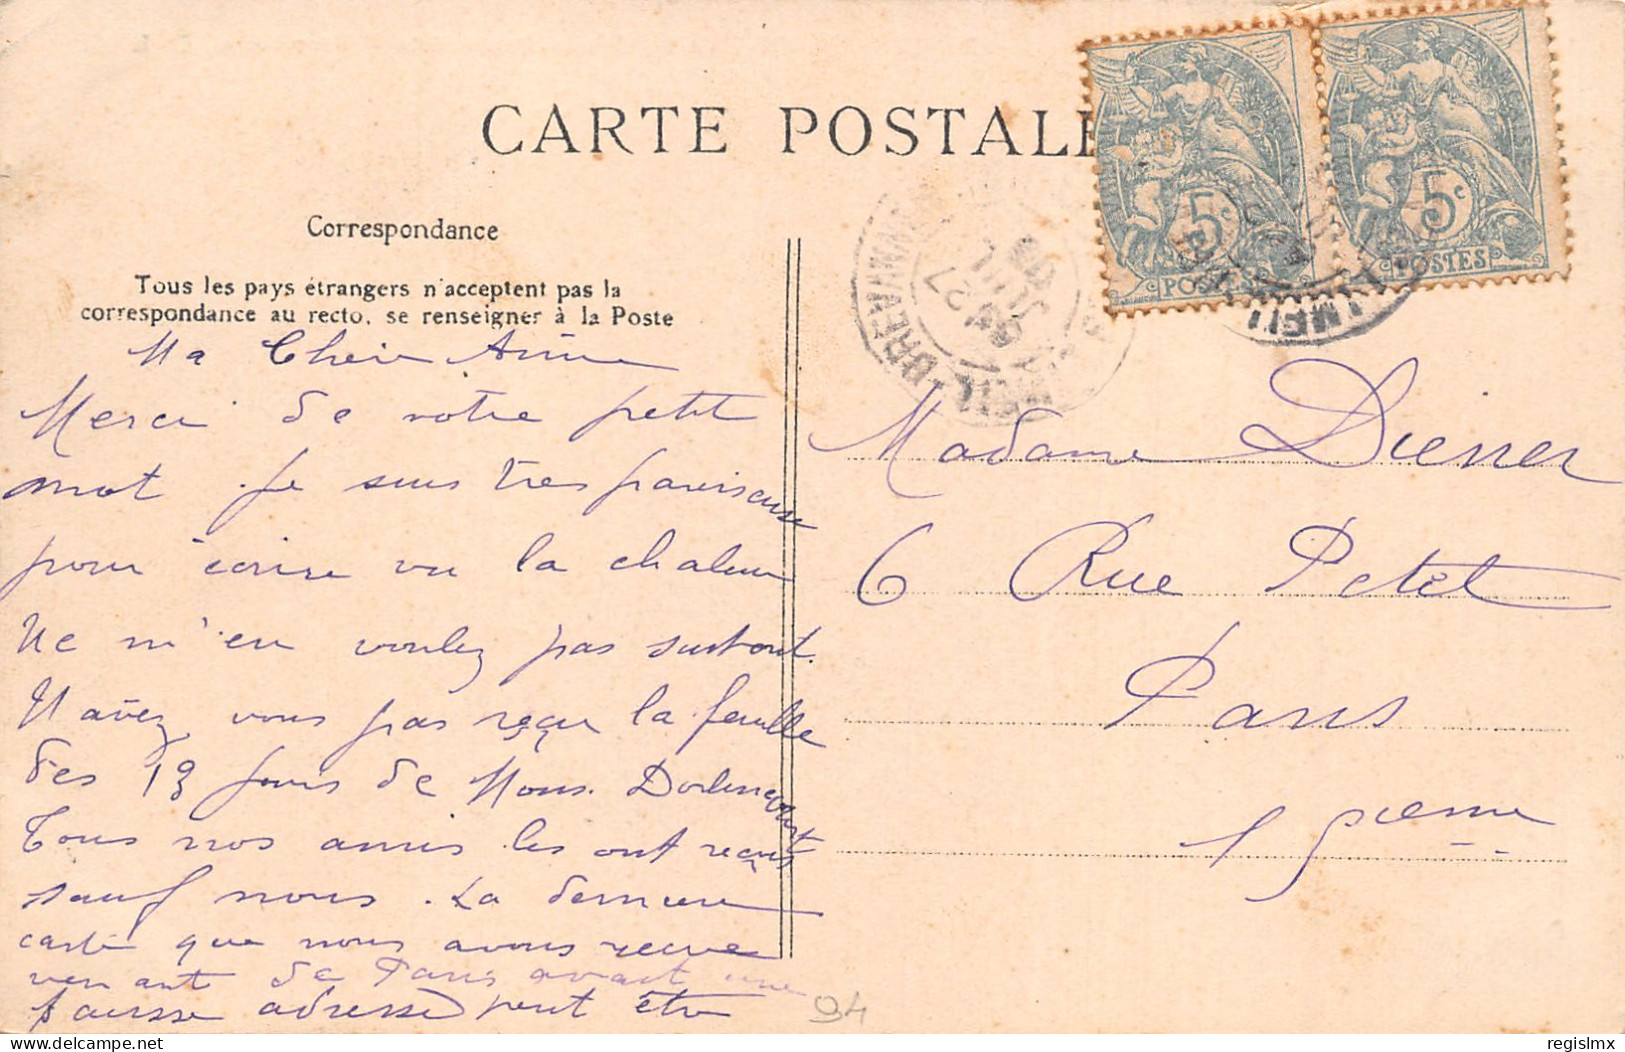 CARTE POSTALE
Correspondance
Tous les pays étrangers n'acceptent pas la
correspondance au recto, se renseigner à la Poste
Ma Chère
Merci de votre petit
mot. Je suis très paresseuse
pour écrire vu la chaleur
Ne m'en voulez pas surtout.
N'avez vous pas reçu la feuille
des 13 jours de Mons.
Tous nos amis les ont reçus
sauf nous. La dernière
carte que nous avons reçue
venant de Paris avait une
fausse adresse peut être
Madame
6 Rue Petel
Paris
15ieme
5c
POSTES
5c
POSTES
94
regislmx